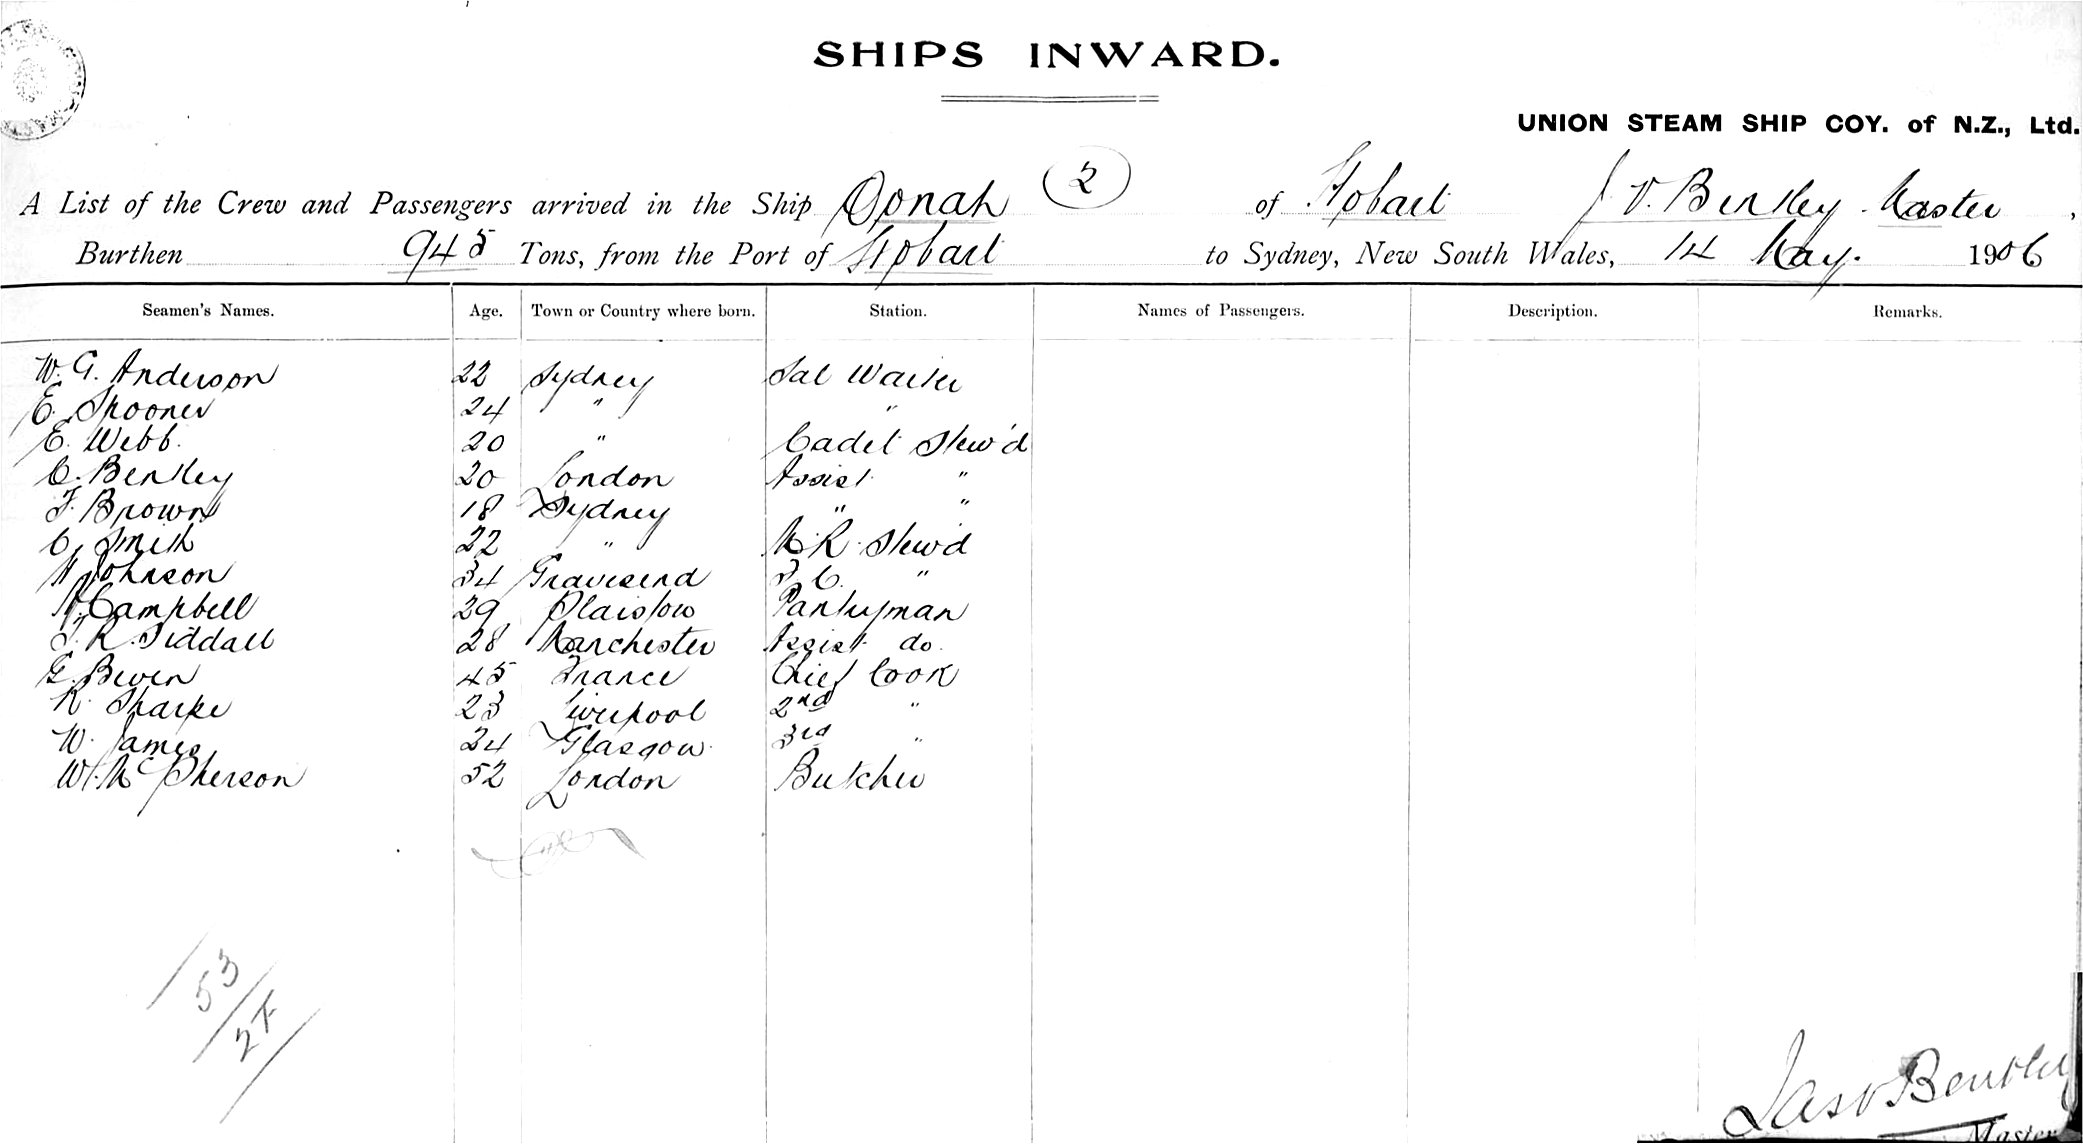 SHIPS INWARD.
UNION STEAM SHIP COY. of N.Z., Ltd.
A List of the Crew and Passengers arrived in the Ship Oonah (2) of Hobart J. V. Bentley Master,
Burthen 945 Tons, from the Port of Hobart to Sydney, New South Wales, 14 May. 1906
Seamen's Names. Age. Town or Country where born. Station. Names of Passengers. Description. Remarks.
W. G. Anderson 22 Sydney Sal Waiter
E. Spooner 24 " "
E. Webb. 20 " Cadet Stew'd
C. Bentley 20 London Assist "
F. Brown 18 Sydney " "
C. Smith 22 " M. R. Stew'd
H Johnson 34 Gravesend F. C. "
H. Campbell 29 Plaistow Pantryman
T. R. Siddall 28 Manchester Assist do.
G. Beven 45 France Chief Cook
R. Sharpe 23 Liverpool 2nd "
W. James 24 Glasgow 3rd "
W. McPherson 52 London Butcher
53
27
Jas V Bentley
Master